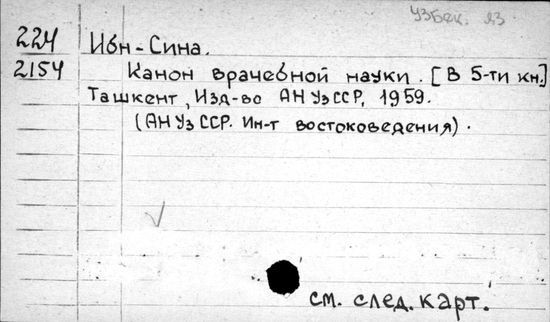 Узбек. яз
224 Ибн-Сина.
2154 Канон врачебной науки. [В 5-ти кн.]
Ташкент, Изд-во АН УзССР, 1959.
(АН УзССР. Ин-т востоковедения).
см. след. карт.